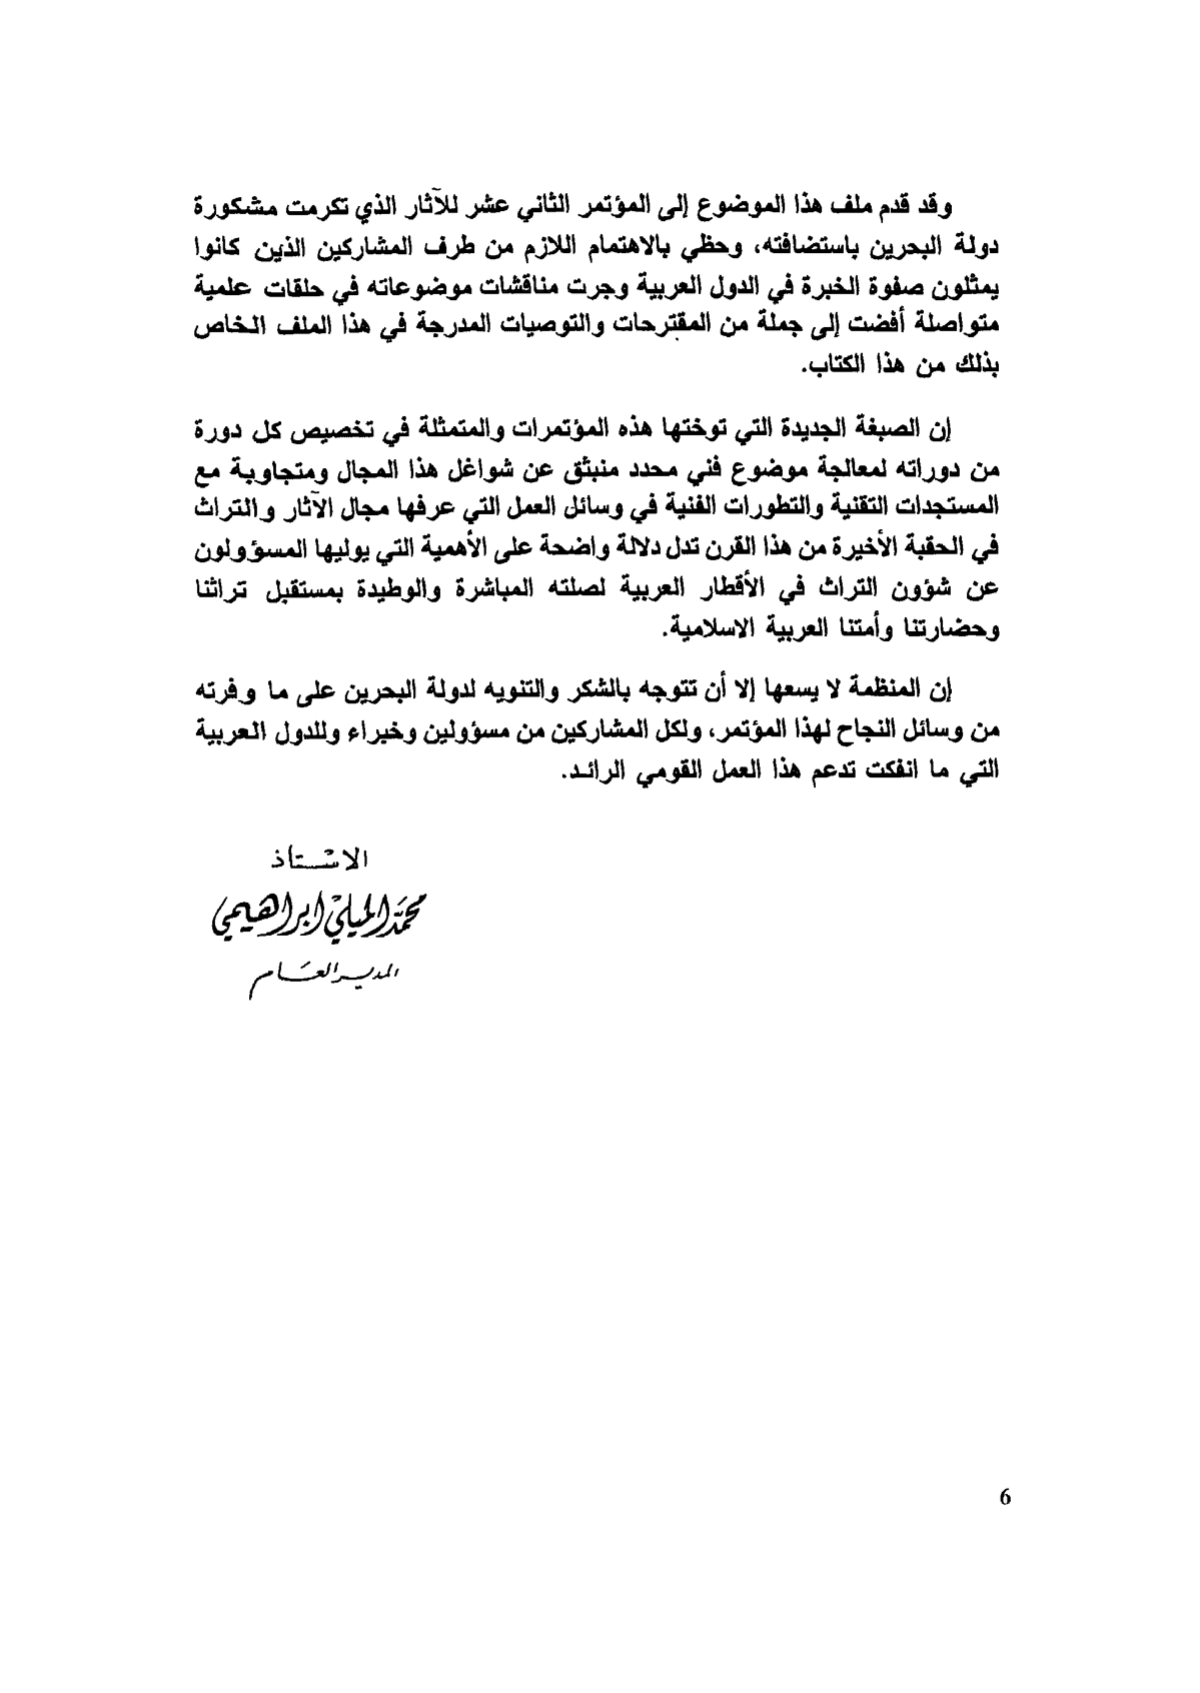 وقد قدم ملف هذا الموضوع إلى المؤتمر الثاني عشر للآثار الذي تكرمت مشكورة
دولة البحرين باستضافته، وحظي بالاهتمام اللازم من طرف المشاركين الذين كانوا
يمثلون صفوة الخبرة في الدول العربية وجرت مناقشات موضوعاته في حلقات علمية
متواصلة أفضت إلى جملة من المقترحات والتوصيات المدرجة في هذا الملف الخاص
بذلك من هذا الكتاب.
إن الصبغة الجديدة التي توختها هذه المؤتمرات والمتمثلة في تخصيص كل دورة
من دوراته لمعالجة موضوع فني محدد منبثق عن شواغل هذا المجال ومتجاوبة مع
المستجدات التقنية والتطورات الفنية في وسائل العمل التي عرفها مجال الآثار والتراث
في الحقبة الأخيرة من هذا القرن تدل دلالة واضحة على الأهمية التي يوليها المسؤولون
عن شؤون التراث في الأقطار العربية لصلته المباشرة والوطيدة بمستقبل تراثنا
وحضارتنا وأمتنا العربية الاسلامية.
إن المنظمة لا يسعها إلا أن تتوجه بالشكر والتنويه لدولة البحرين على ما وفرته
من وسائل النجاح لهذا المؤتمر، ولكل المشاركين من مسؤولين وخبراء وللدول العربية
التي ما انفكت تدعم هذا العمل القومي الرائد.
الاستاذ
محمد الميلي ابراهيمي
المدير العام
6